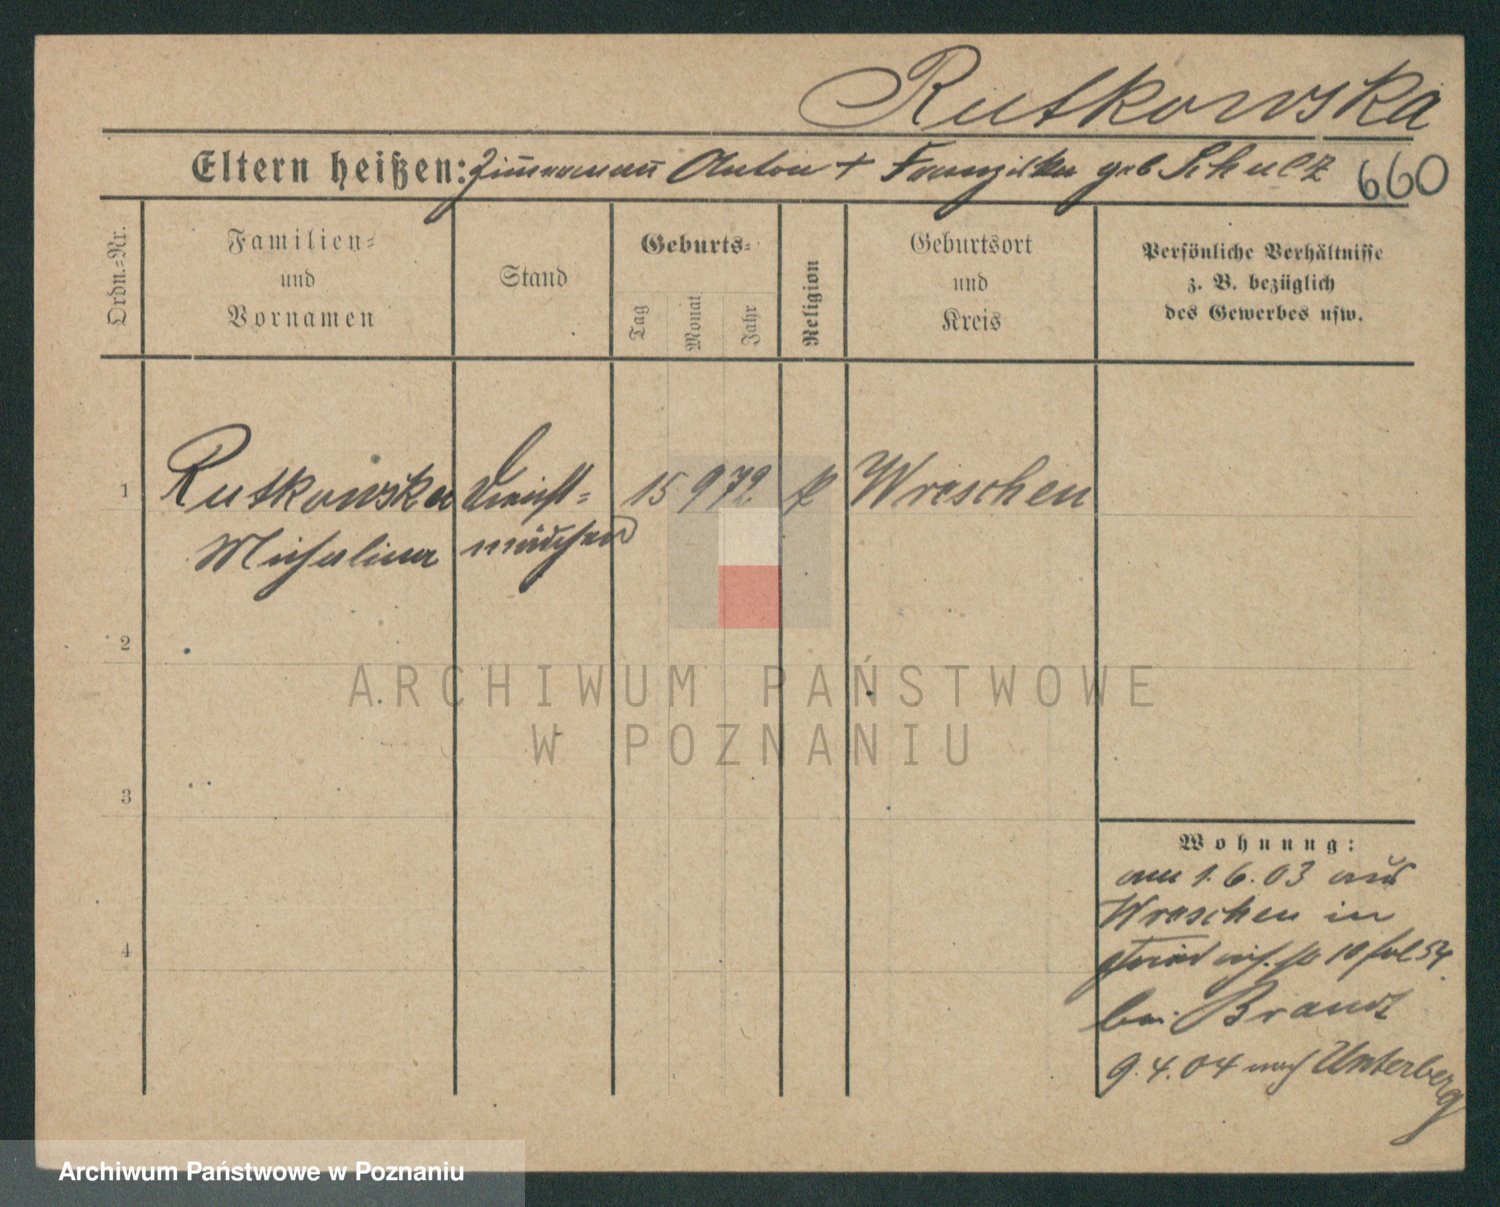 Rutkowska
Eltern heißen: Zimmermann Anton + Franziska geb Schulz 660
Ordn.=Nr.
Familien=
und
Vornamen
Stand
Geburts=
Tag
Monat
Jahr
Religion
Geburtsort
und
Kreis
Persönliche Verhältnisse
z. B. bezüglich
des Gewerbes usw.
1 Rutkowska Dienst= 15 9 72 k Wreschen
Michalina mädchen
2
3
4
Wohnung:
am 1.6.03 aus
Wreschen in
10 fol 54
bei Brandt
9.4.04 nach Unterberg
ARCHIWUM PAŃSTWOWE
W POZNANIU
Archiwum Państwowe w Poznaniu